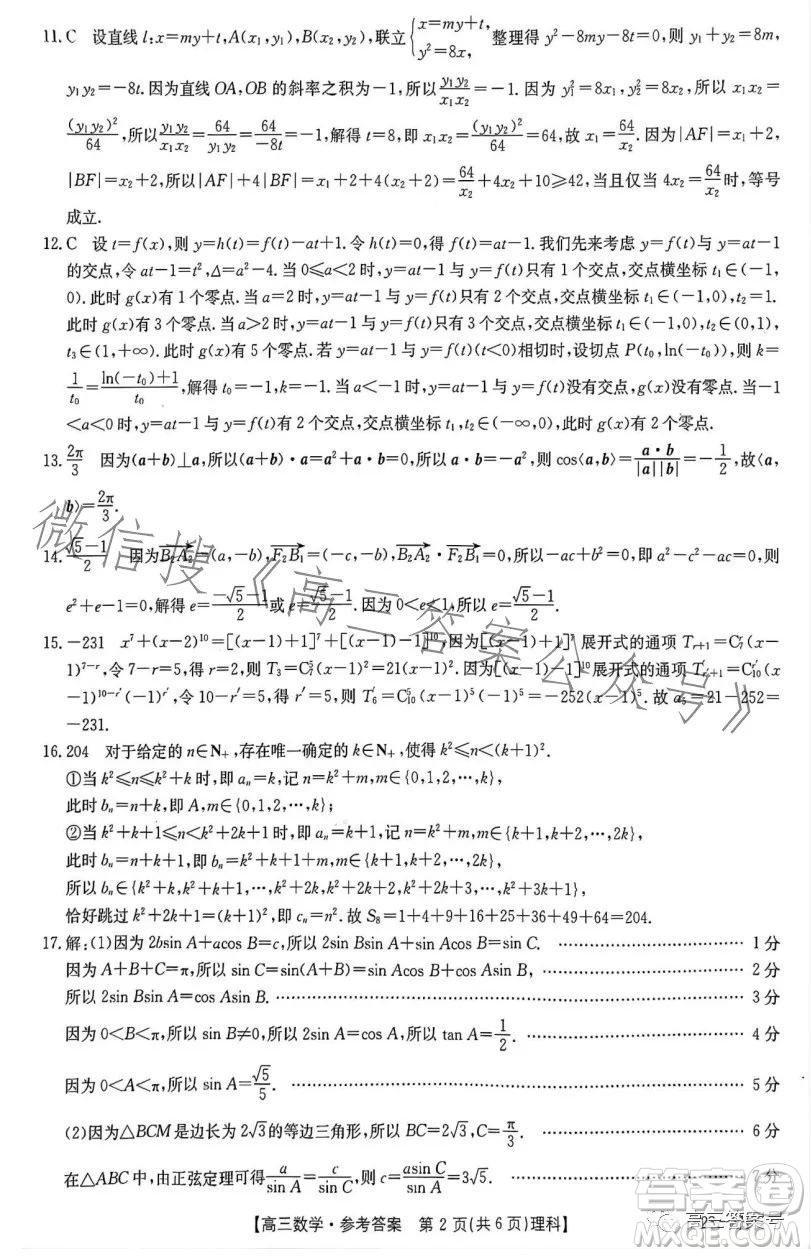 11. C 设直线 l:x=my+t,A(x₁,y₁),B(x₂,y₂),联立{x=my+t, y²=8x, 整理得 y²-8my-8t=0,则 y₁+y₂=8m,
y₁y₂=-8t.因为直线 OA,OB 的斜率之积为-1,所以 y₁y₂/x₁x₂=-1. 因为 y₁²=8x₁,y₂²=8x₂,所以 x₁x₂=
(y₁y₂)²/64,所以 y₁y₂/x₁x₂=64/y₁y₂=64/-8t=-1,解得 t=8,即 x₁x₂=(y₁y₂)²/64=64,故 x₁=64/x₂. 因为|AF|=x₁+2,
|BF|=x₂+2,所以|AF|+4|BF|=x₁+2+4(x₂+2)=64/x₂+4x₂+10≥42,当且仅当 4x₂=64/x₂时,等号
成立.
12. C 设 t=f(x),则 y=h(t)=f(t)-at+1.令 h(t)=0,得 f(t)=at-1.我们先来考虑 y=f(t)与 y=at-1
的交点,令 at-1=t²,Δ=a²-4.当 0≤a<2 时,y=at-1 与 y=f(t)只有 1 个交点,交点横坐标 t₁∈(-1,
0).此时 g(x)有 1 个零点.当 a=2 时,y=at-1 与 y=f(t)只有 2 个交点,交点横坐标 t₁∈(-1,0),t₂=1.
此时 g(x)有 3 个零点.当 a>2 时,y=at-1 与 y=f(t)只有 3 个交点,交点横坐标 t₁∈(-1,0),t₂∈(0,1),
t₃∈(1,+∞).此时 g(x)有 5 个零点.若 y=at-1 与 y=f(t)(t<0)相切时,设切点 P(t₀,ln(-t₀)),则 k=
1/t₀=(ln(-t₀)+1)/t₀,解得 t₀=-1,k=-1.当 a<-1 时,y=at-1 与 y=f(t)没有交点,g(x)没有零点.当-1
<a<0 时,y=at-1 与 y=f(t)有 2 个交点,交点横坐标 t₁,t₂∈(-∞,0),此时 g(x)有 2 个零点.
13. 2π/3 因为(a+b)⊥a,所以(a+b)·a=a²+a·b=0,所以 a·b=-a²,则 cos⟨a,b⟩=a·b/|a||b|=-1/2,故⟨a,
b⟩=2π/3.
14. (√5-1)/2 因为B₂A₂=(a,-b),F₂B₁=(-c,-b),B₂A₂·F₂B₁=0,所以-ac+b²=0,即 a²-c²-ac=0,则
e²+e-1=0,解得 e=(-√5-1)/2或 e=(√5-1)/2.因为 0<e<1,所以 e=(√5-1)/2.
15. -231 x⁷+(x-2)¹⁰=[(x-1)+1]⁷+[(x-1)-1]¹⁰,因为[(x-1)+1]⁷展开式的通项 Tᵣ₊₁=C₇ʳ(x-
1)⁷⁻ʳ,令 7-r=5,得 r=2,则 T₃=C₇²(x-1)⁵=21(x-1)⁵.因为[(x-1)-1]¹⁰展开式的通项 T′ᵣ′₊₁=C₁₀ʳ′(x
-1)¹⁰⁻ʳ′(-1)ʳ′,令 10-r′=5,得 r′=5,则 T′₆=C₁₀⁵(x-1)⁵(-1)⁵=-252(x-1)⁵.故 a₅=21-252=
-231.
16. 204 对于给定的 n∈N₊,存在唯一确定的 k∈N₊,使得 k²≤n<(k+1)².
①当 k²≤n≤k²+k 时,即 aₙ=k,记 n=k²+m,m∈{0,1,2,…,k};
此时 bₙ=n+k,即 A,m∈{0,1,2,…,k};
②当 k²+k+1≤n<k²+2k+1 时,即 aₙ=k+1,记 n=k²+m,m∈{k+1,k+2,…,2k};
此时 bₙ=n+k+1,即 bₙ=k²+k+1+m,m∈{k+1,k+2,…,2k},
所以 bₙ∈{k²+k,k²+k+1,…,k²+2k,k²+2k+2,k²+2k+3,…,k²+3k+1},
恰好跳过 k²+2k+1=(k+1)²,即 cₙ=n².故 S₈=1+4+9+16+25+36+49+64=204.
17. 解:(1)因为 2bsin A+acos B=c,所以 2sin Bsin A+sin Acos B=sin C. …… 1 分
因为 A+B+C=π,所以 sin C=sin(A+B)=sin Acos B+cos Asin B, …… 2 分
所以 2sin Bsin A=cos Asin B. …… 3 分
因为 0<B<π,所以 sin B≠0,所以 2sin A=cos A,所以 tan A=1/2. …… 4 分
因为 0<A<π,所以 sin A=√5/5. …… 5 分
(2)因为△BCM 是边长为 2√3的等边三角形,所以 BC=2√3,C=π/3. …… 6 分
在△ABC 中,由正弦定理可得 a/sin A=c/sin C,则 c=asin C/sin A=3√5. …… 7 分
【高三数学·参考答案 第 2 页(共 6 页)理科】
微信搜《高三答案公众号》
答案圈
高三答案号